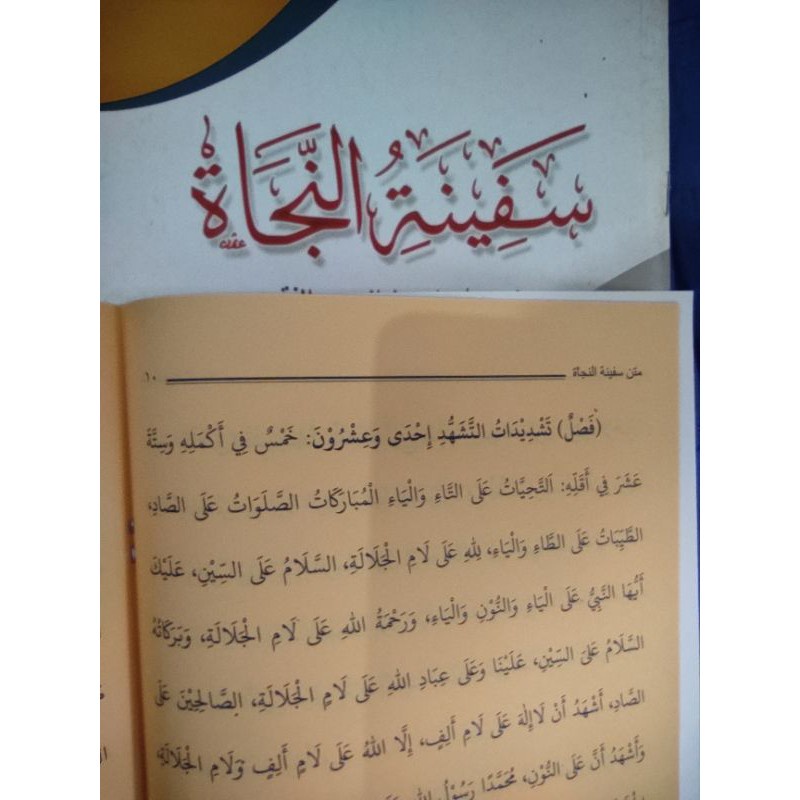 سَفِينَةُ النَّجَاةِ
متن سفينة النجاة
١٠
(فَصْلٌ) تَشْدِيْدَاتُ التَّشَهُّدِ إِحْدَى وَعِشْرُوْنَ: خَمْسٌ فِي أَكْمَلِهِ وَسِتَّةَ
عَشَرَ فِي أَقَلِّهِ: اَلتَّحِيَّاتُ عَلَى التَّاءِ وَالْيَاءِ الْمُبَارَكَاتُ الصَّلَوَاتُ عَلَى الصَّادِ،
الطَّيِّبَاتُ عَلَى الطَّاءِ وَالْيَاءِ، لِلّٰهِ عَلَى لَامِ الْجَلَالَةِ، السَّلَامُ عَلَى السِّيْنِ، عَلَيْكَ
أَيُّهَا النَّبِيُّ عَلَى الْيَاءِ وَالنُّوْنِ وَالْيَاءِ، وَرَحْمَةُ اللهِ عَلَى لَامِ الْجَلَالَةِ، وَبَرَكَاتُهُ
السَّلَامُ عَلَى السِّيْنِ، عَلَيْنَا وَعَلَى عِبَادِ اللهِ عَلَى لَامِ الْجَلَالَةِ، الصَّالِحِيْنَ عَلَى
الصَّادِ، أَشْهَدُ أَنْ لَاإِلٰهَ عَلَى لَامِ أَلِفٍ، إِلَّا اللهُ عَلَى لَامِ أَلِفٍ وَلَامِ الْجَلَالَةِ،
وَأَشْهَدُ أَنَّ عَلَى النُّوْنِ، مُحَمَّدًا رَسُوْلُ اللهِ